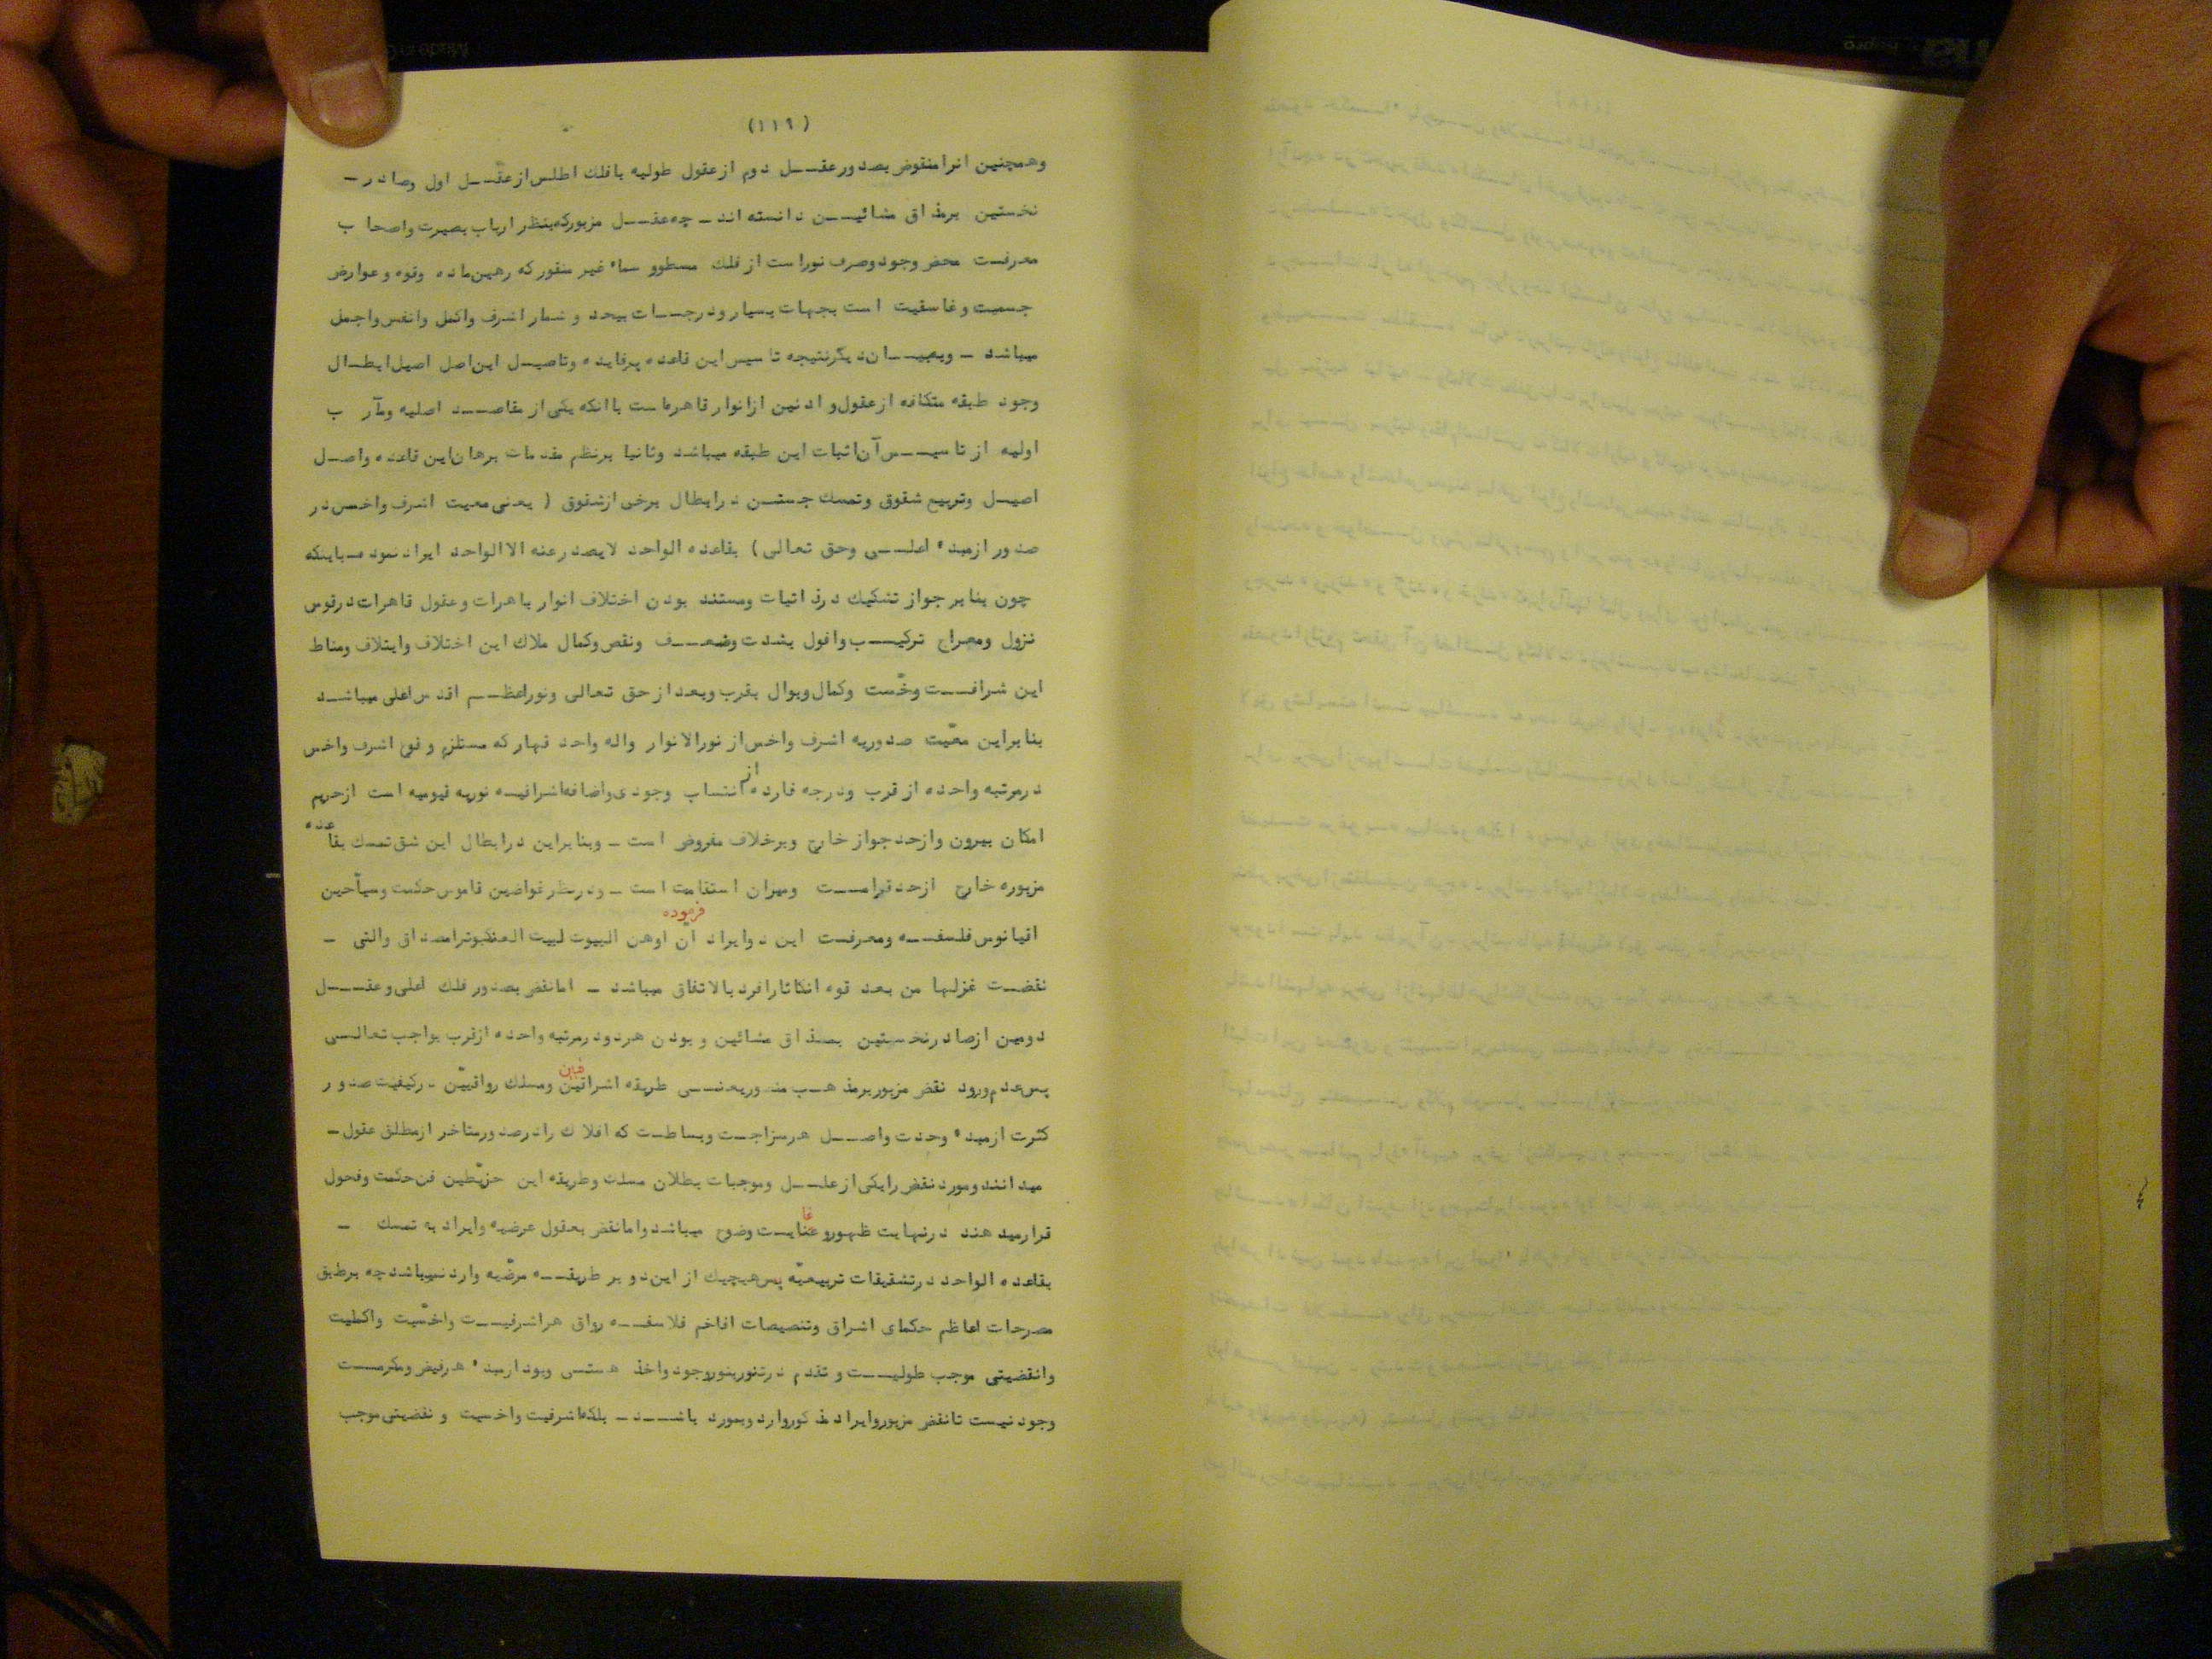 (١١٩)
وهمچنین انرا منقوض بصدور عقـــل دوم از عقول طولیه با فلك اطلس از عقـــل اول وصادر ـ
نخستین برمذاق مشائیـــن دانسته اند ـ چه عقـــل مزبور که بنظر ارباب بصیرت واصحاب
معرفت محض وجود وصرف نور است از فلك مسطور و سماء غیر منقور که رهین ماده وقوه وعوارض
جسمیت وغاسقیت است بجهات بسیار ودرجـــات بیحد و شمار اشرف واکمل وانفس واجمل
میباشد ـ وببیـــان دیگر نتیجه تاسیس این قاعده پرفایده وتاصیـل این اصل اصیل ابطـال
وجود طبقه متکافه از عقول و ادنین از انوار قاهره است با انکه یکی از مقاصـــد اصلیه ومآرب
اولیه از تاسیـــس آن اثبات این طبقه میباشد وثانیا برنظم مقدمات برهان این قاعده واصـل
اصیـل وتربیع شقوق وتمسك جستـن در ابطال برخی از شقوق ( یعنی معیت اشرف واخس در
صدور از مبدء اعلـــی وحق تعالی ) بقاعده الواحد لایصدر عنه الا الواحد ایراد نموده ـ باینکه
چون بنا بر جواز تشکیك در ذاتیات ومستند بودن اختلاف انوار باهرات وعقول قاهرات در قوس
نزول ومعراج ترکیـــب وافول بشدت وضعـــف ونقص وکمال ملاك این اختلاف وایتلاف ومناط
این شرافـــت وخسّت وکمال وبوال بقرب وبعد از حق تعالی ونور اعظـــم اقدس اعلی میباشـد
بنا براین معیّت صدوریه اشرف واخس از نور الانوار واله واحد قهار که مستلزم وقوع اشرف واخس
در مرتبه واحده از قرب ودرجه فارده از انتساب وجودی واضافه اشراقیـه نوریه قیومیه است از حریم
امکان بیرون وازحد جواز خارج وبرخلاف مفروض است ـ وبنا براین در ابطال این شق تمسك بقاعده
مزبوره خارج ازحد قرامـــت ومیزان استقامت است ـ ودر نظر غواصین قاموس حکمت وسیّاحین
اقیانوس فلسفـــه ومعرفت این دو ایراد فرموده ان اوهن البیوت لبیت العنکبوت را مصداق والتی ـ
نقضـت غزلها من بعد قوه انکاثا را فرد بالاتفاق میباشد ـ اما نقض بصدور فلك اعلی وعقـــل
دومین از صادر نخستین بمذاق مشائین و بودن هر دو در مرتبه واحده از قرب بواجب تعالـــی
پس عدم ورود نقض مزبور برمذهـب منصور یعنـــی طریقه اشراقیّین ومسلك رواقییّن در کیفیّت صدور
کثرت از مبدء وحدت واصـــل هر مزاجـت وبساطـت که افلاك را در صدور متاخر از مطلق عقول ـ
میدانند ومورد نقض را یکی از علـــل وموجبات بطلان مسلك وطریقه این حزیّطین فن حکمت وفحول
قرار میدهند در نهایت ظهور و غایـت وضوح میباشد واما نقض بعقول عرضیه وایراد به تمسك ـ
بقاعده الواحد در تشقیقات تربیعیّه پس هیچیك از این دو بر طریقـــه مرضّیه وارد نمیباشد چه برطبق
مصرحات اعاظم حکمای اشراق وتنصیصات افاخم فلاسفـــه رواق هر اشرفیـــت واخسّیت واکملیت
وانقضیتی موجب طولیـــت و تقدم در تنور بنور وجود واخذ هستـی وبود از مبدء هر فیض ومکرمـــت
وجود نیست تا نقض مزبور وایراد مذکور وارد وبمورد باشـــد ـ بلکه اشرفیت واخسیت و نقضیتی موجب